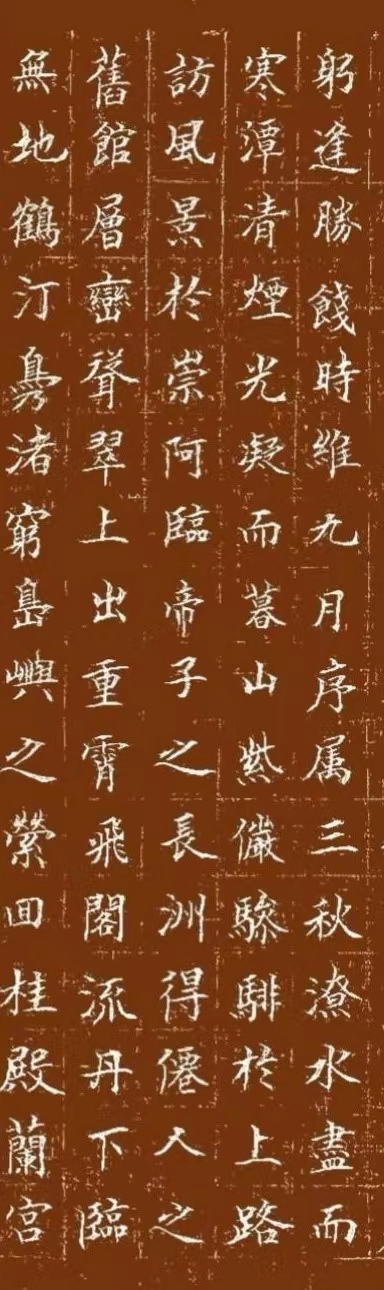 躬逢勝餞時維九月序属三秋潦水盡而
寒潭清煙光凝而暮山紫儼驂騑於上路
訪風景於崇阿臨帝子之長洲得僊人之
舊館層巒聳翠上出重霄飛閣流丹下臨
無地鶴汀鳧渚窮島嶼之縈回桂殿蘭宮